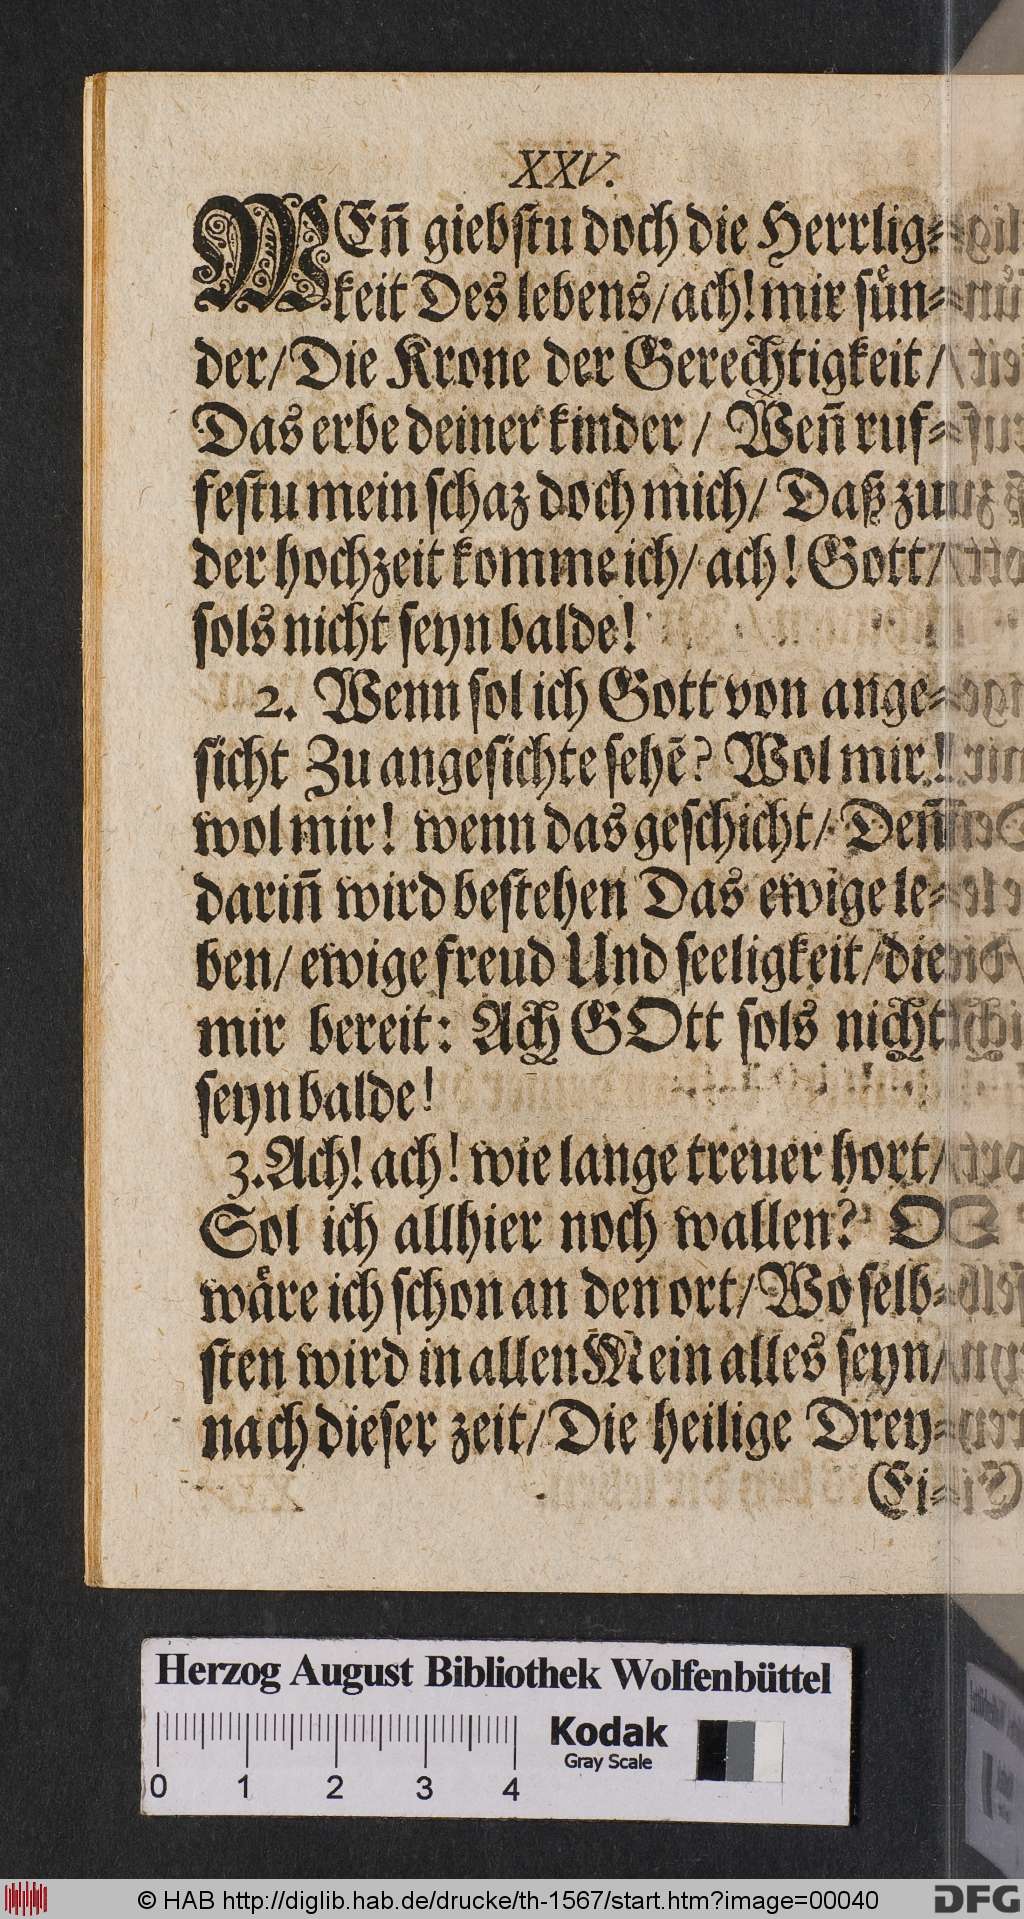 XXV.
WEñ giebstu doch die Herrlig-
keit Des lebens/ach! mir suͤn-
der/Die Krone der Gerechtigkeit/
Das erbe deiner kinder/ Weñ ruf-
festu mein schaz doch mich/ Daß zu
der hochzeit komme ich/ ach! Gott/
sols nicht seyn balde!
2. Wenn sol ich Gott von ange-
sicht Zu angesichte sehē? Wol mir!
wol mir! wenn das geschicht/ Deñ
dariñ wird bestehen Das ewige le-
ben/ ewige freud Und seeligkeit/die
mir bereit: Ach GOtt sols nicht
seyn balde!
3. Ach! ach! wie lange treuer hort/
Sol ich allhier noch wallen? O
waͤre ich schon an den ort/Wo selb-
sten wird in allen Mein alles seyn/
nach dieser zeit/Die heilige Drey-
Ei-
Herzog August Bibliothek Wolfenbüttel
Kodak
Gray Scale
0 1 2 3 4
© HAB http://diglib.hab.de/drucke/th-1567/start.htm?image=00040
DFG